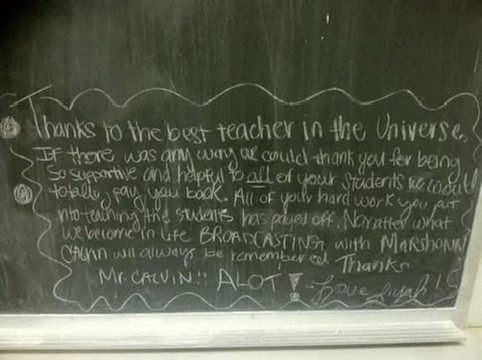 Thanks to the best teacher in the Universe.
If there was any way we could thank you for being
so supportive and helpful to all of your students we would
totally pay you back. All of your hard work you put
into teaching the students has payed off. No matter what
we become in life BROADCASTING with MARSHONN
CALVIN will always be remembered. Thanks
Mr. CALVIN!! ALOT! Love